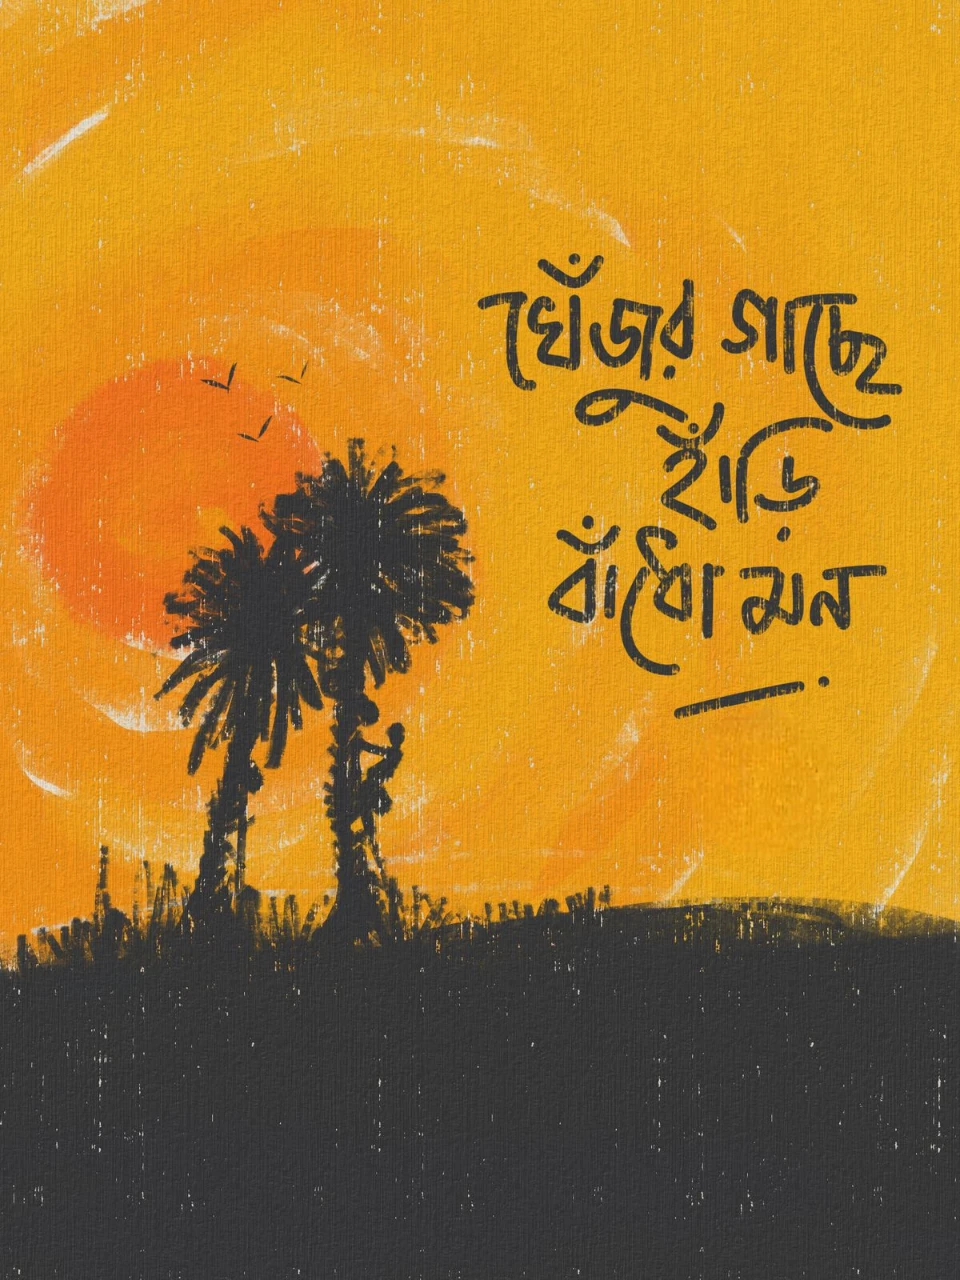 খেঁজুর গাছে
হাঁড়ি
বাঁধো মন